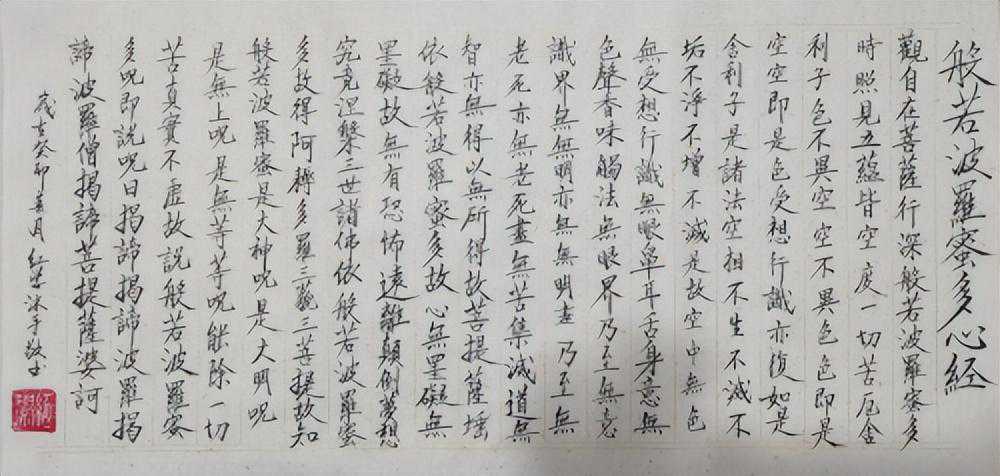 般若波羅蜜多心経
觀自在菩薩行深般若波羅蜜多
時照見五蘊皆空度一切苦厄舍
利子色不異空空不異色色即是
空空即是色受想行識亦復如是
舍利子是諸法空相不生不滅不
垢不淨不增不減是故空中無色
無受想行識無眼鼻耳舌身意無
色聲香味觸法無眼界乃至無意
識界無無明亦無無明盡乃至無
老死亦無老死盡無苦集滅道無
智亦無得以無所得故菩提薩埵
依般若波羅蜜多故心無罣礙無
罣礙故無有恐怖遠離顛倒夢想
究竟涅槃三世諸佛依般若波羅蜜
多故得阿耨多羅三藐三菩提故知
般若波羅蜜是大神呪是大明呪
是無上呪是無等等呪能除一切
苦真實不虛故說般若波羅蜜
多呪即說呪曰揭諦揭諦波羅揭
諦波羅僧揭諦菩提薩婆訶
歲在癸卯月沐手敬書